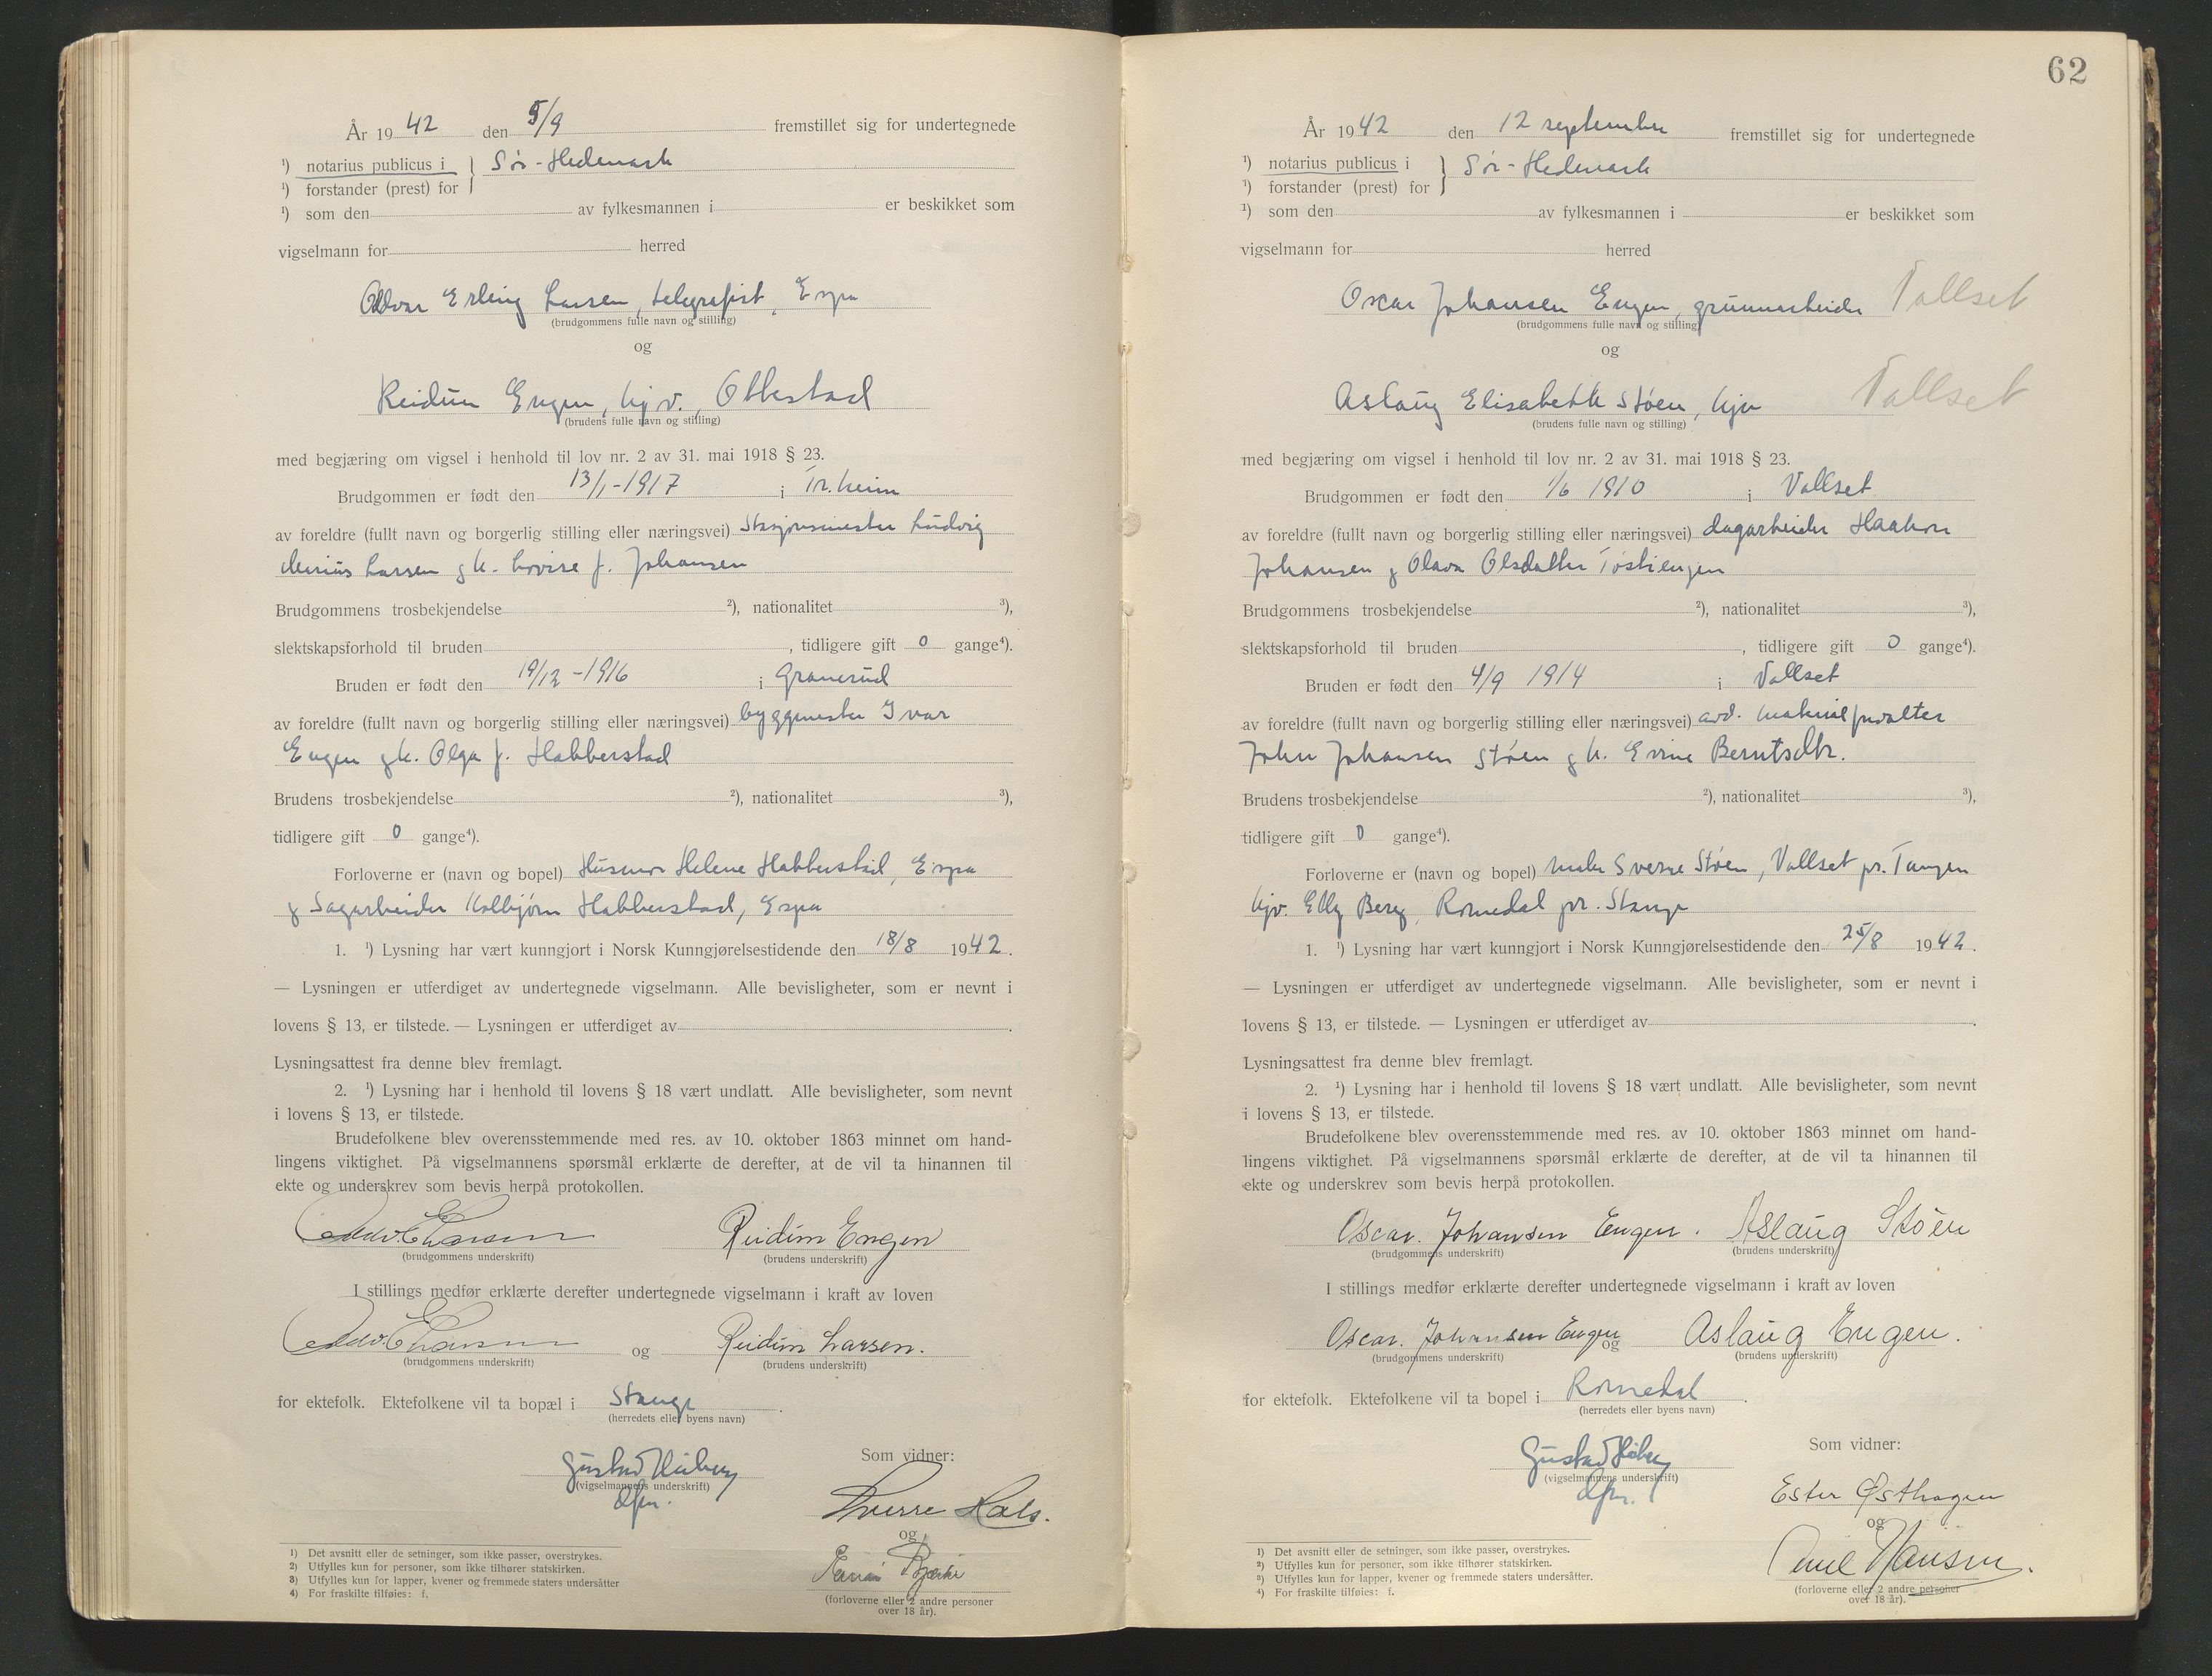 År 1942 den 5/9 fremstillet sig for undertegnede
¹) notarius publicus i } Sør-Hedemark
¹) forstander (prest) for
¹) som den av fylkesmannen i er beskikket som
vigselmann for herred
Oddvar Erling Larsen, telegrafist, Espa
(brudgommens fulle navn og stilling)
og
Reidun Engen, hjv., Ottestad
(brudens fulle navn og stilling)
med begjæring om vigsel i henhold til lov nr. 2 av 31. mai 1918 § 23.
Brudgommen er født den 13/1-1917 i Tr.heim
av foreldre (fullt navn og borgerlig stilling eller næringsvei) Stasjonsmester Ludvig
Larsen g h. Lovise f. Johansen
Brudgommens trosbekjendelse ²), nationalitet ³),
slektskapsforhold til bruden , tidligere gift 0 gange⁴).
Bruden er født den 19/12-1916 i Granerud
av foreldre (fullt navn og borgerlig stilling eller næringsvei) byggmester Ivar
Engen g h. Olga f. Habberstad
Brudens trosbekjendelse ²), nationalitet ³),
tidligere gift 0 gange⁴).
Forloverne er (navn og bopel) Husmor Helene Habberstad, Espa
g Sagarbeider Kolbjørn Habberstad, Espa
1. ¹) Lysning har vært kunngjort i Norsk Kunngjørelsestidende den 18/8 1942.
— Lysningen er utferdiget av undertegnede vigselmann. Alle bevisligheter, som er nevnt i
lovens § 13, er tilstede. — Lysningen er utferdiget av .
Lysningsattest fra denne blev fremlagt.
2. ¹) Lysning har i henhold til lovens § 18 vært undlatt. Alle bevisligheter, som nevnt
i lovens § 13, er tilstede.
Brudefolkene blev overensstemmende med res. av 10. oktober 1863 minnet om hand-
lingens viktighet. På vigselmannens spørsmål erklærte de derefter, at de vil ta hinannen til
ekte og underskrev som bevis herpå protokollen.
Oddv. E Larsen Reidun Engen
(brudgommens underskrift) (brudens underskrift)
I stillings medfør erklærte derefter undertegnede vigselmann i kraft av loven
Oddv. E Larsen og Reidun Larsen.
(brudgommens underskrift) (brudens underskrift)
for ektefolk. Ektefolkene vil ta bopæl i Stange .
(herredets eller byens navn)
Som vidner:
Gustav Høiberg
(vigselmannens underskrift)
dfm.
Sverre Hals.
og
Bjerke
(forloverne eller 2 andre personer
over 18 år).
1) Det avsnitt eller de setninger, som ikke passer, overstrykes.
2) Utfylles kun for personer, som ikke tilhører statskirken.
3) Utfylles kun for lapper, kvener og fremmede staters undersåtter
4) For fraskilte tilføies: f.
62
År 1942 den 12 september fremstillet sig for undertegnede
¹) notarius publicus i } Sør-Hedemark
¹) forstander (prest) for
¹) som den av fylkesmannen i er beskikket som
vigselmann for herred
Oscar Johansen Engen, grunnarbeider Vallset
(brudgommens fulle navn og stilling)
og
Aslaug Elisabeth Støen, hjv Vallset
(brudens fulle navn og stilling)
med begjæring om vigsel i henhold til lov nr. 2 av 31. mai 1918 § 23.
Brudgommen er født den 1/6 1910 i Vallset
av foreldre (fullt navn og borgerlig stilling eller næringsvei) dagarbeider Haakon
Johansen g Olava Olsdatter Tostiengen
Brudgommens trosbekjendelse ²), nationalitet ³),
slektskapsforhold til bruden , tidligere gift 0 gange⁴).
Bruden er født den 4/9 1914 i Vallset
av foreldre (fullt navn og borgerlig stilling eller næringsvei) avd. materialforvalter
John Johansen Støen g h. Evine Berntsdtr.
Brudens trosbekjendelse ²), nationalitet ³),
tidligere gift 0 gange⁴).
Forloverne er (navn og bopel) maler Sverre Støen, Vallset pr. Tangen
hjv. Elly Berg, Romedal pr. Stange
1. ¹) Lysning har vært kunngjort i Norsk Kunngjørelsestidende den 25/8 1942.
— Lysningen er utferdiget av undertegnede vigselmann. Alle bevisligheter, som er nevnt i
lovens § 13, er tilstede. — Lysningen er utferdiget av .
Lysningsattest fra denne blev fremlagt.
2. ¹) Lysning har i henhold til lovens § 18 vært undlatt. Alle bevisligheter, som nevnt
i lovens § 13, er tilstede.
Brudefolkene blev overensstemmende med res. av 10. oktober 1863 minnet om hand-
lingens viktighet. På vigselmannens spørsmål erklærte de derefter, at de vil ta hinannen til
ekte og underskrev som bevis herpå protokollen.
Oscar. Johansen Engen. Aslaug Støen
(brudgommens underskrift) (brudens underskrift)
I stillings medfør erklærte derefter undertegnede vigselmann i kraft av loven
Oscar. Johansen Engen og Aslaug Engen.
(brudgommens underskrift) (brudens underskrift)
for ektefolk. Ektefolkene vil ta bopel i Romedal .
(herredets eller byens navn)
Som vidner:
Gustav Høiberg
(vigselmannens underskrift)
dfm.
Ester Østhagen
og
Emil Hansen.
(forloverne eller 2 andre personer
over 18 år).
1) Det avsnitt eller de setninger, som ikke passer, overstrykes.
2) Utfylles kun for personer, som ikke tilhører statskirken.
3) Utfylles kun for lapper, kvener og fremmede staters undersåtter.
4) For fraskilte tilføies: f.